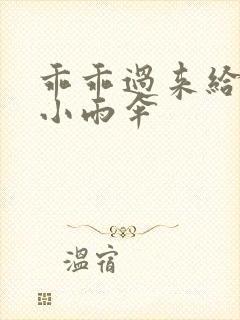 乖乖过来给
小雨伞
温宿